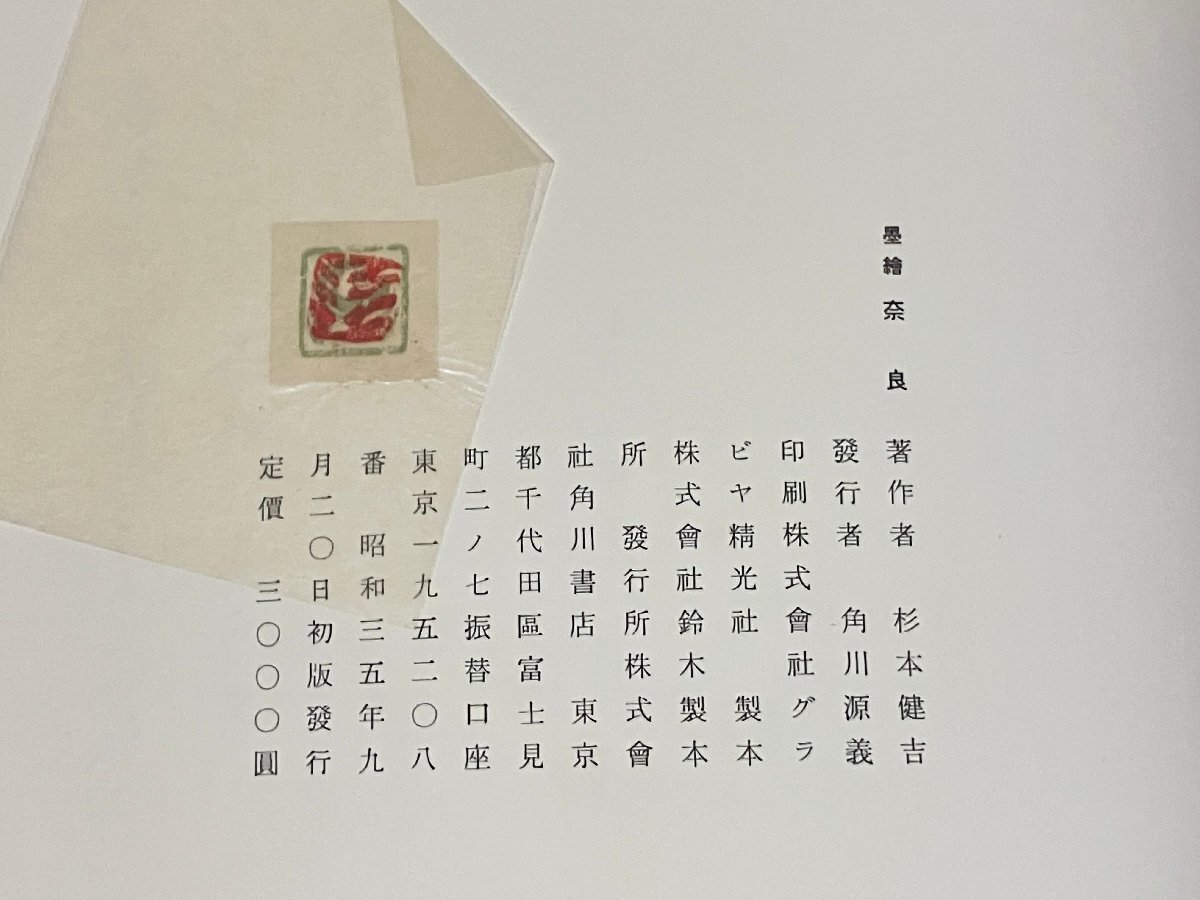 墨繪 奈 良
著作者 杉本健吉
發行者 角川源義
印刷株式會社グラ
ビヤ精光社 製本
株式會社鈴木製本
所 發行所株式會
社角川書店 東京
都千代田區富士見
町二ノ七振替口座
東京一九五二〇八
番 昭和三五年九
月二〇日初版發行
定價 三〇〇〇圓